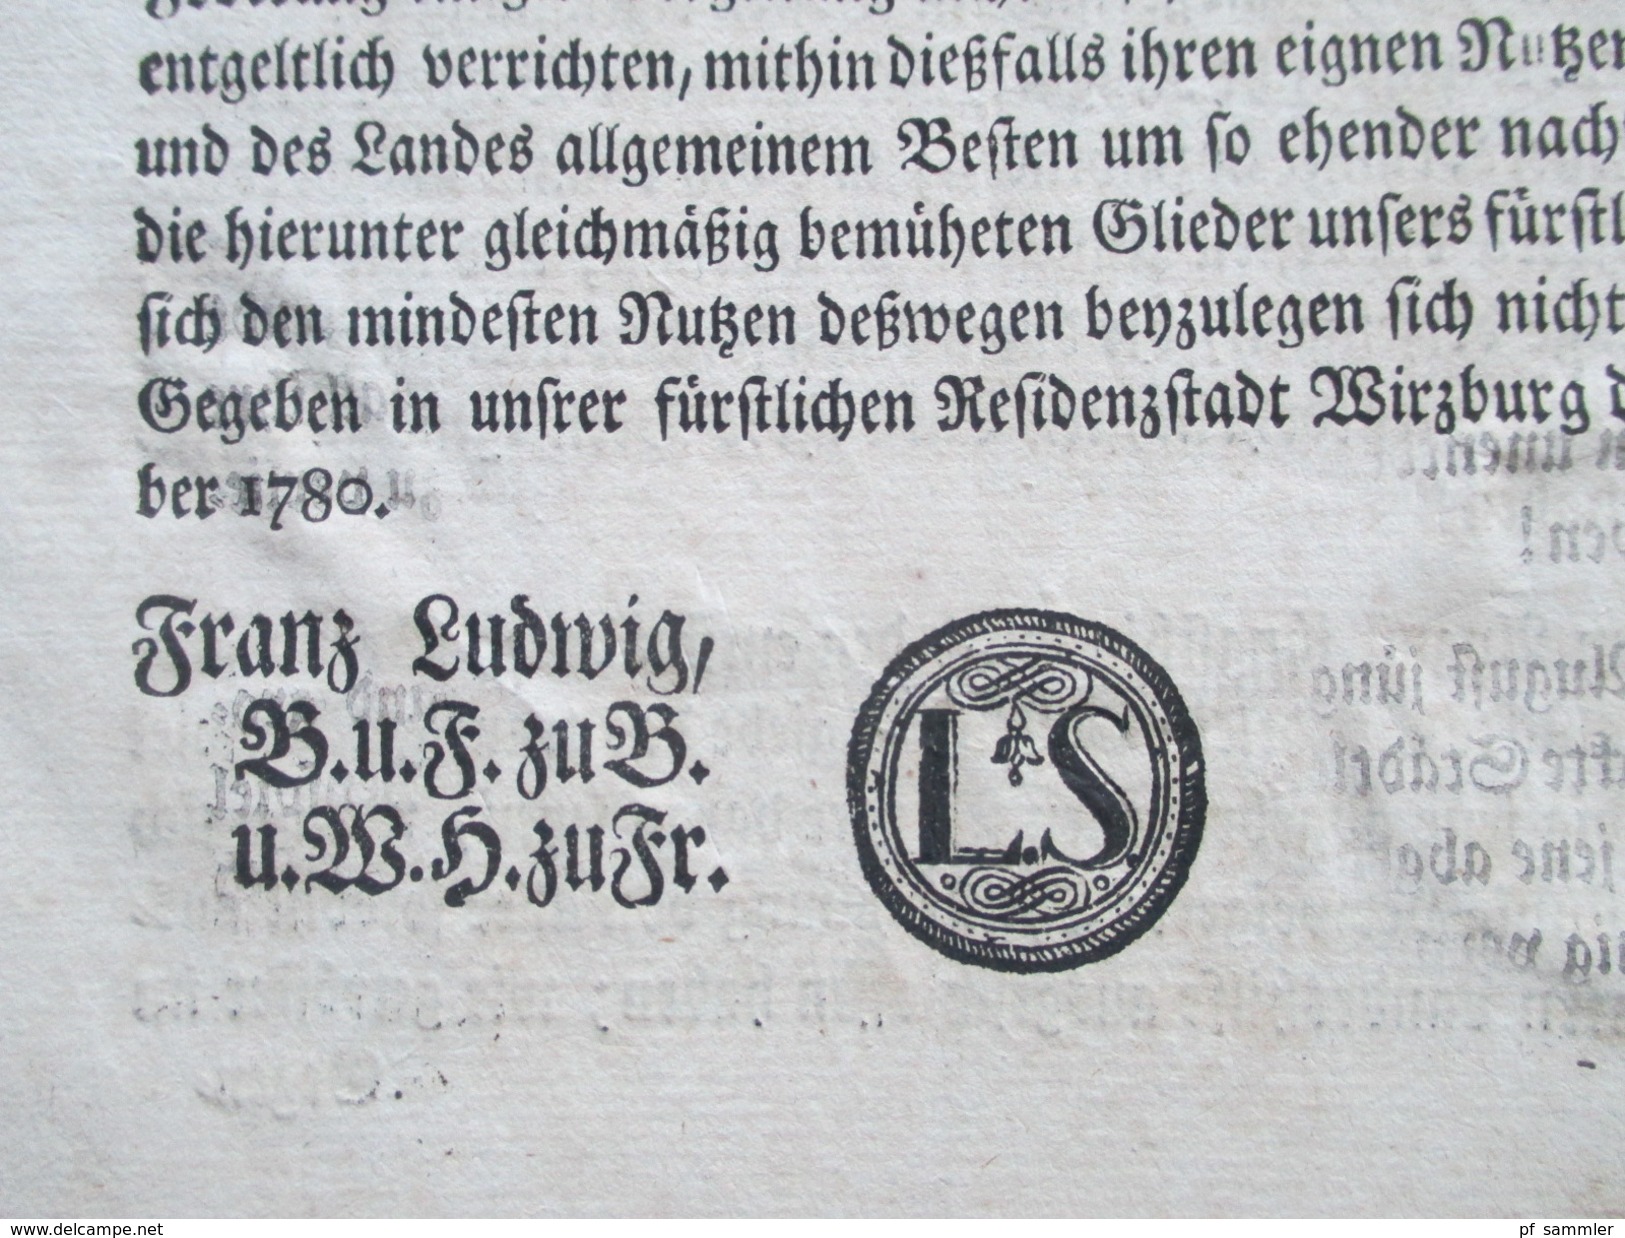 entgeltlich verrichten, mithin dießfalls ihren eignen
und des Landes allgemeinem Beſten um ſo ehender nach
die hierunter gleichmäßig bemüheten Glieder unſers fürſtl
ſich den mindeſten Nutzen deßwegen beyzulegen ſich nicht
Gegeben in unſrer fürſtlichen Reſidenzſtadt Wirzburg d
ber 1780.
Franz Ludwig,
B. u. F. zu B.
u. W. H. zu Fr.
L. S.
www.delcampe.net
pf_sammler